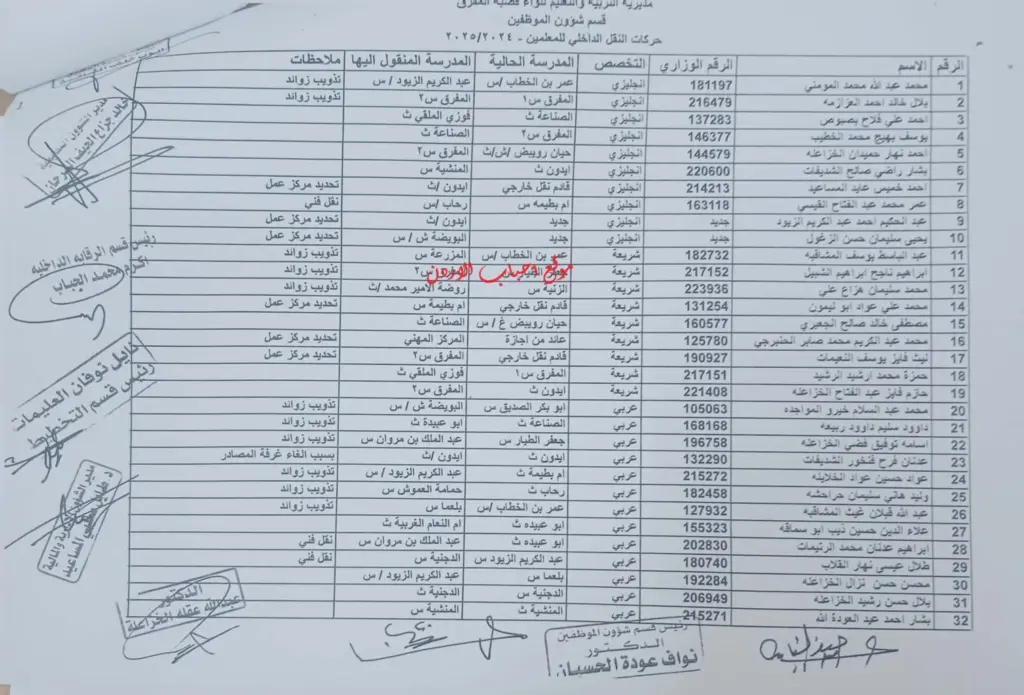 مديرية التربية والتعليم للواء قصبة المفرق
قسم شؤون الموظفين
حركات النقل الداخلي للمعلمين - ٢٠٢٥/٢٠٢٤
الرقم الاسم الرقم الوزاري التخصص المدرسة الحالية المدرسة المنقول اليها ملاحظات
1 محمد عبد الله محمد المومني 181197 انجليزي عمر بن الخطاب /س عبد الكريم الزيود / س تذويب زوائد
2 بلال خالد احمد العزازمه 216479 انجليزي المفرق س١ المفرق س٢ تذويب زوائد
3 احمد علي فلاح بصبوص 137283 انجليزي الصناعة ث فوزي الملقي ث
4 يوسف بهيج محمد الخطيب 146377 انجليزي المفرق س٢ الصناعة ث
5 احمد نهار حميدان الخزاعله 144579 انجليزي حيان رويبض /ش/ث المفرق س٢
6 بشار راضي صالح الشديفات 220600 انجليزي ايدون ث المنشية س
7 احمد خميس عايد المساعيد 214213 انجليزي قادم نقل خارجي ايدون /ث تحديد مركز عمل
8 عمر محمد عبد الفتاح القيسي 163118 انجليزي ام بطيمه س رحاب /س نقل فني
9 عبد الحكيم احمد عبد الكريم الزيود جديد انجليزي جديد ايدون /ث تحديد مركز عمل
10 يحيى سليمان حسن الزغول جديد انجليزي جديد البويضة ش / س تحديد مركز عمل
11 عبد الباسط يوسف المشاقبه 182732 شريعة عمر بن الخطاب /س المزرعة س تذويب زوائد
12 ابراهيم ناجح ابراهيم الشبيل 217152 شريعة تذويب زوائد
موقع احباب الاردن
13 محمد سليمان هزاع علي 223936 شريعة الزنيه س روضة الامير محمد /ث تذويب زوائد
14 محمد علي عواد ابو ليمون 131254 شريعة قادم نقل خارجي ام بطيمة س تحديد مركز عمل
15 مصطفى خالد صالح الجعبري 160577 شريعة حيان رويبض غ / س الصناعة ث
16 محمد عبد الكريم محمد صابر الحنيرجي 125780 شريعة عائد من اجازة المركز المهني تحديد مركز عمل
17 ليث فايز يوسف النعيمات 190927 شريعة قادم نقل خارجي المفرق س٢ تحديد مركز عمل
18 حمزة محمد ارشيد الرشيد 217151 شريعة المفرق س١ فوزي الملقي ث
19 حازم فايز عبد الفتاح الخزاعله 221408 شريعة ايدون ث المفرق س٢
20 محمد عبد السلام خيرو المواجده 105063 عربي ابو بكر الصديق س البويضة ش / س تذويب زوائد
21 داوود سليم داوود ربيعه 168168 عربي الصناعة ث ابو عبيدة ث تذويب زوائد
22 اسامه توفيق فضي الخزاعله 196758 عربي جعفر الطيار س عبد الملك بن مروان س تذويب زوائد
23 عدنان فرح فنخور الشديفات 132290 عربي ايدون ث ايدون /ث بسبب الغاء غرفة المصادر
24 عواد حسين عواد الخلايله 215272 عربي ام بطيمة ث عبد الكريم الزيود / س تذويب زوائد
25 وليد هاني سليمان حراحشه 182458 عربي رحاب ث حمامة العموش س تذويب زوائد
26 عبد الله قبلان غيث المشاقبه 127932 عربي عمر بن الخطاب /س بلعما س تذويب زوائد
27 علاء الدين حسين ذيب ابو سماقه 155323 عربي ابو عبيده ث ام النعام الغربية ث
28 ابراهيم عدنان محمد الرتيمات 202830 عربي ابو عبيده ث عبد الملك بن مروان س نقل فني
29 طلال عيسى نهار القلاب 180740 عربي عبد الكريم الزيود س الدجنية س نقل فني
30 محسن حسن نزال الخزاعله 192284 عربي بلعما س عبد الكريم الزيود / س
31 بلال حسن رشيد الخزاعله 206949 عربي الدجنية س الدجنية ث
32 بشار احمد عبد العودة الله 215271 عربي المنشية ث المنشية س
رئيس قسم الرقابه الداخليه
اكرم محمد الجباب
نايل نوفان العليمات
رئيس قسم التخطيط
الدكتور
عبدالله عقله الخزاعلة
رئيس قسم شؤون الموظفين
الدكتور
نواف عودة الحسبان